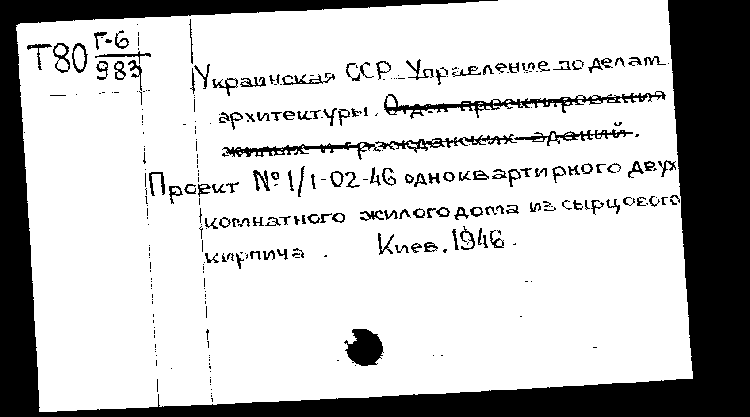 Т80 Г-6
983
Украинская ССР Управление по делам
архитектуры. Отдел проектирования
жилых и гражданских зданий.
Проект № 1/1-02-46 одноквартирного двух
комнатного жилого дома из сырцового
кирпича . Киев. 1946.